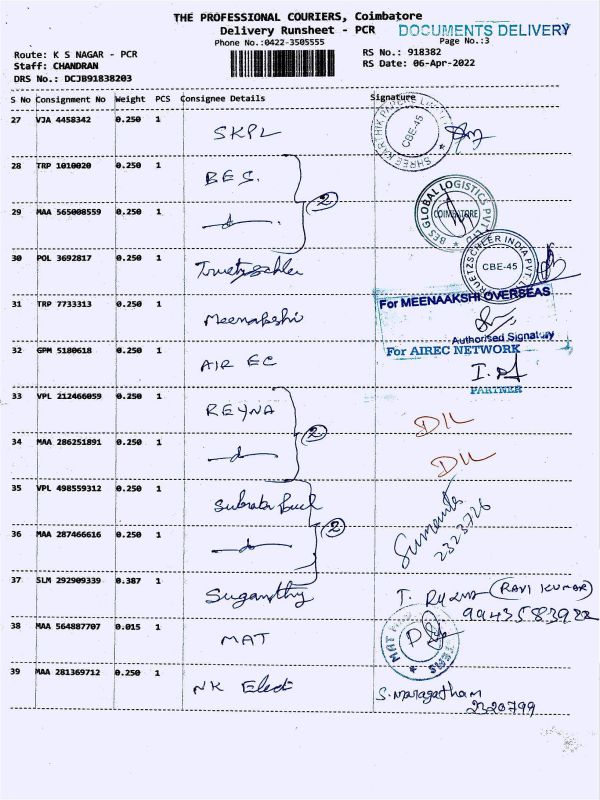 THE PROFESSIONAL COURIERS, Coimbatore
Delivery Runsheet - PCR DOCUMENTS DELIVERY
Phone No.:0422-3505555 Page No.:3
Route: K S NAGAR - PCR RS No.: 918382
Staff: CHANDRAN RS Date: 06-Apr-2022
DRS No.: DCJB91838203
S No Consignment No Weight PCS Consignee Details Signature
27 VJA 4458342 0.250 1 SKPL SHREE KARTHIK PAPERS LIMITED CBE-45
28 TRP 1010020 0.250 1 BES. 2
29 MAA 565008559 0.250 1 BES GLOBAL LOGISTICS PVT LTD COIMBATORE
30 POL 3692817 0.250 1 Truetzschler TRUETZSCHLER INDIA PVT. CBE-45
31 TRP 7733313 0.250 1 Meenakshi For MEENAAKSHI OVERSEAS
Authorised Signatory
32 GPM 5180618 0.250 1 AIR EC For AIREC NETWORK
PARTNER
33 VPL 212466059 0.250 1 REYNA 2 DIL
34 MAA 286251891 0.250 1 DIL
35 VPL 498559312 0.250 1 2
36 MAA 287466616 0.250 1 2323726
37 SLM 292909339 0.387 1 Suganthy (RAVI KUMAR)
38 MAA 564887707 0.015 1 MAT MAT
39 MAA 281369712 0.250 1 NK Elect S. Maragatham
2320799